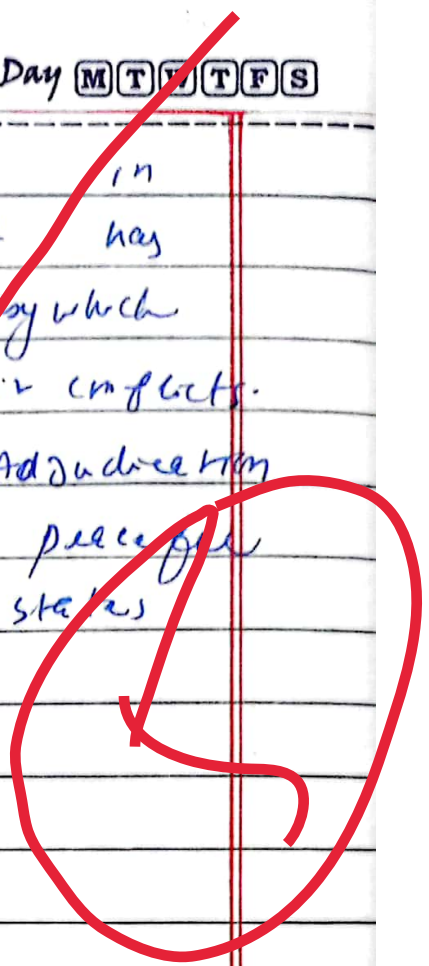 Day M T W T F S
in
has
by which
conflicts.
Adjudication
peaceful
states